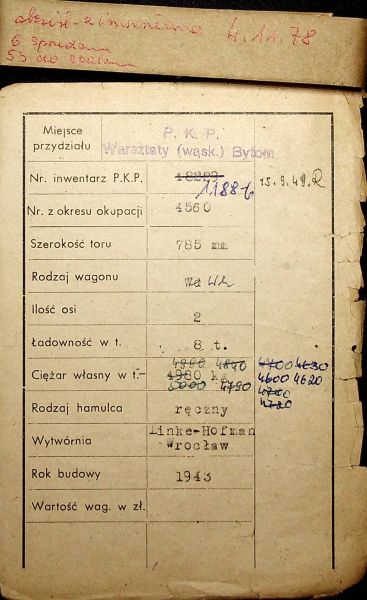 4.11.78
6
53 do
Miejsce przydziału
P. K. P.
Warsztaty (wąsk.) Bytom
Nr. inwentarz P.K.P.
18299
15.9.49.R
Nr. z okresu okupacji
4560
Szerokość toru
785 mm
Rodzaj wagonu
Wd Wh
Ilość osi
2
Ładowność w t.
8 t.
Ciężar własny w t.-
4840
kg
5000 4790
4600 4620
Rodzaj hamulca
ręczny
Wytwórnia
Linke-Hofman
Wrocław
Rok budowy
1943
Wartość wag. w zł.